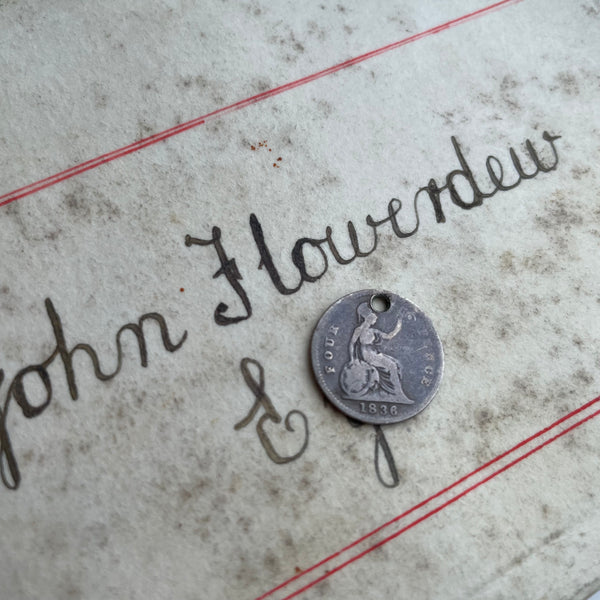 John Flowerdew
E
FOUR PENCE
1836